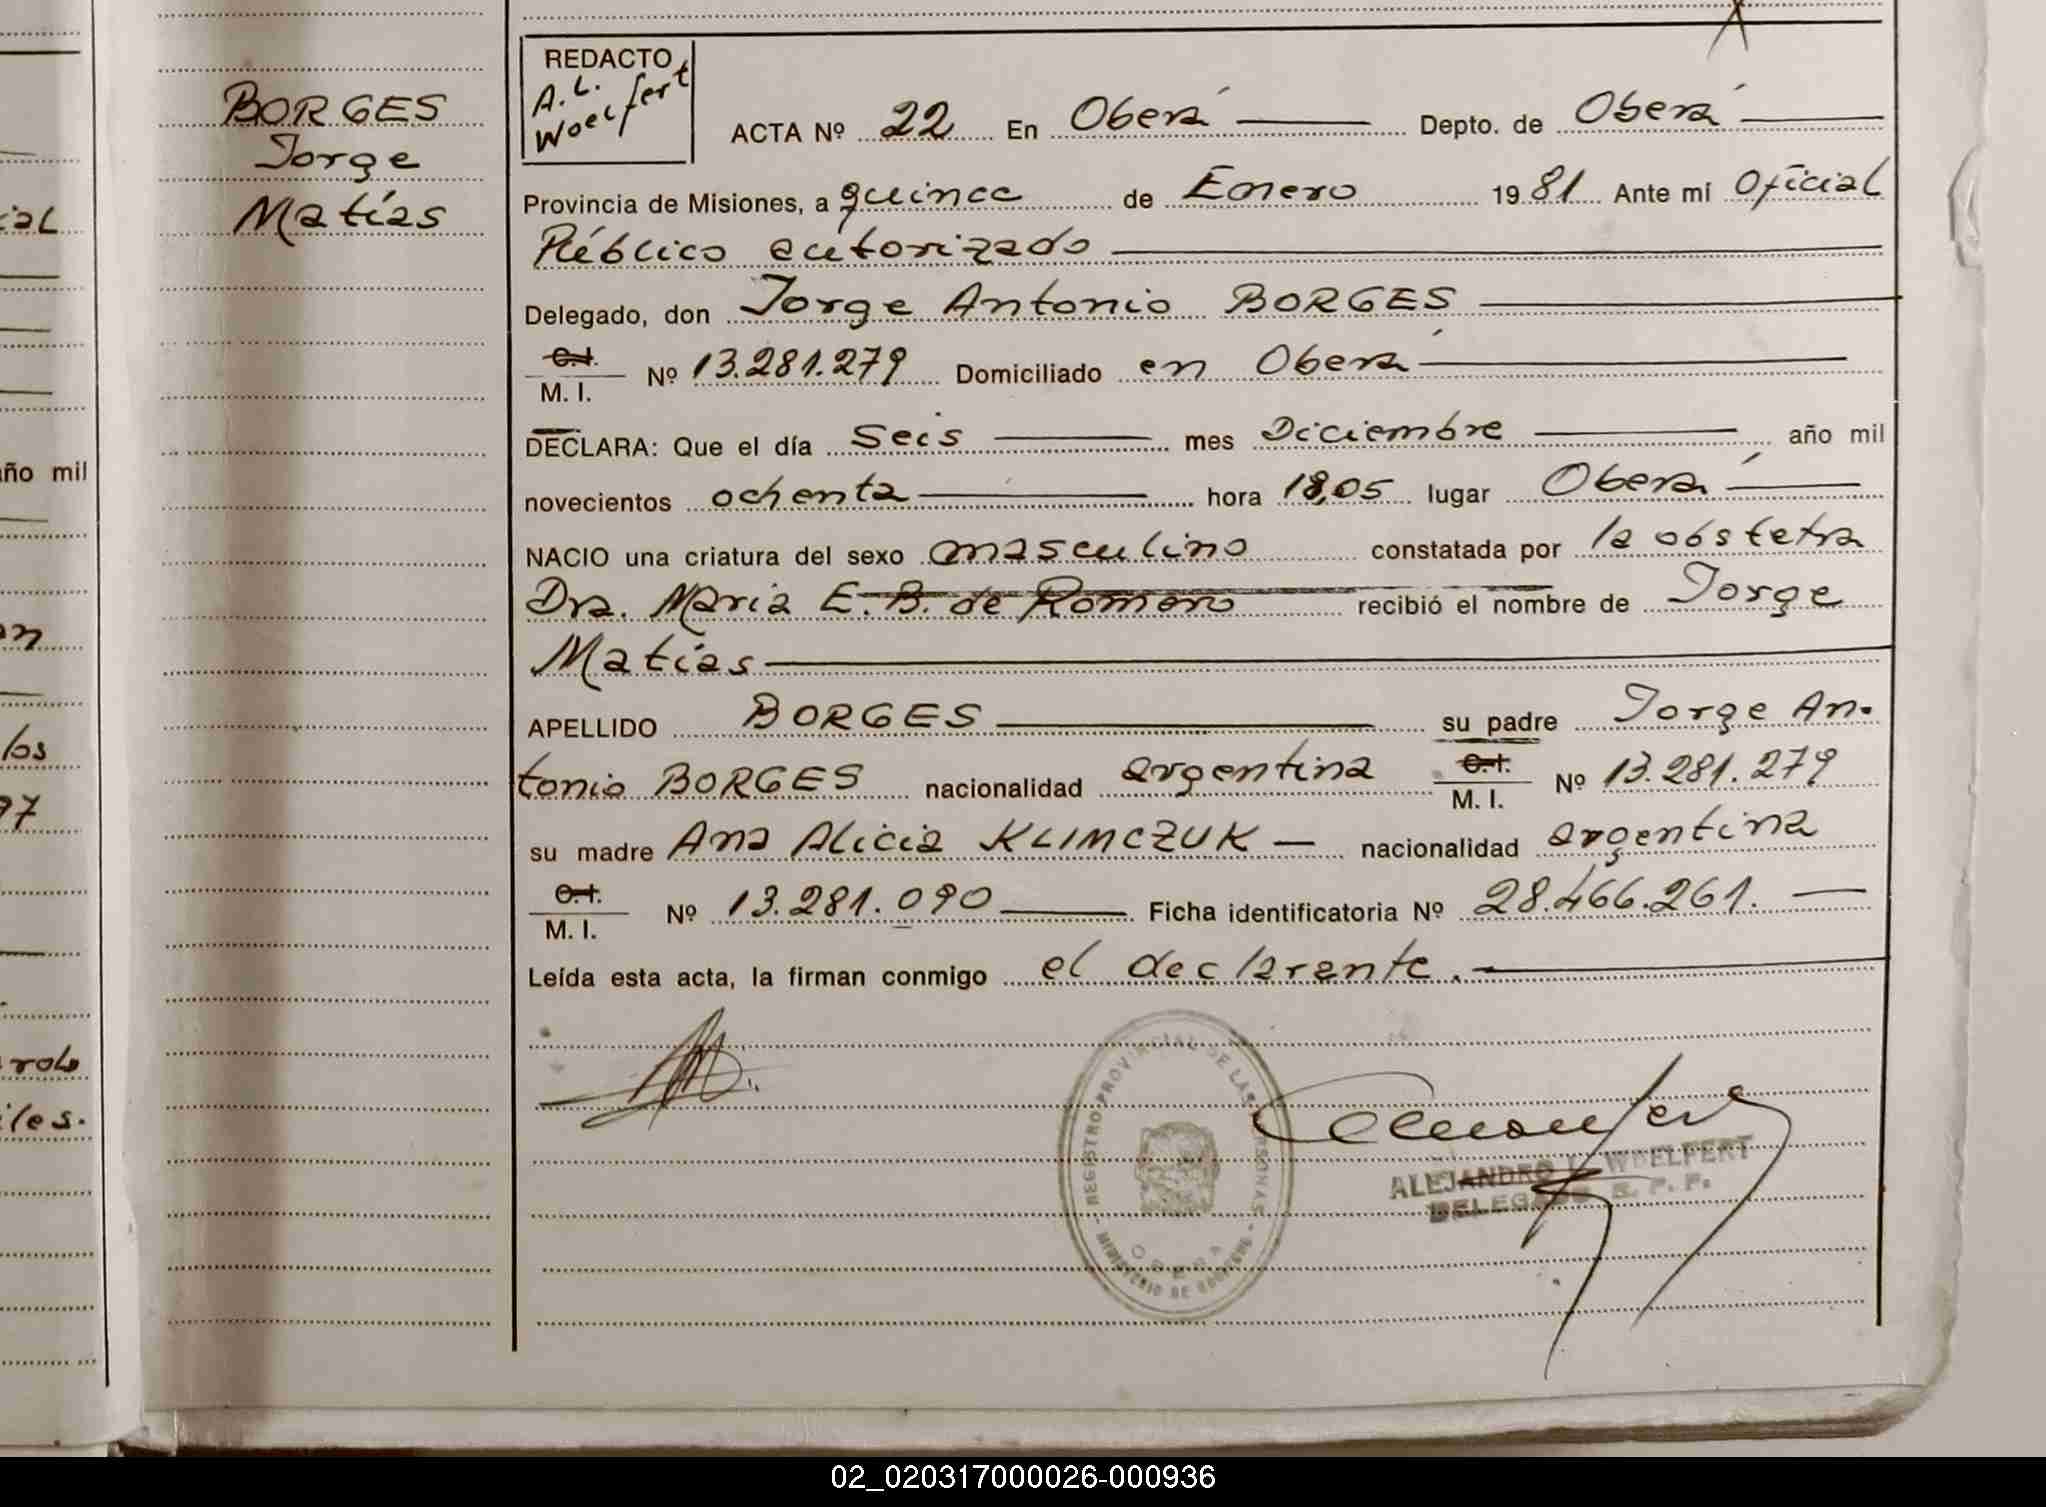 BORGES
Jorge
Matías
REDACTO
A. L.
Woelfert
ACTA Nº 22 En Oberá Depto. de Oberá
Provincia de Misiones, a quince de Enero 1981. Ante mí Oficial
Público autorizado
Delegado, don Jorge Antonio BORGES
C.I.
M. I. Nº 13.281.279 Domiciliado en Oberá
DECLARA: Que el día Seis mes Diciembre año mil
novecientos ochenta hora 18,05 lugar Oberá
NACIO una criatura del sexo masculino constatada por la obstetra
Dra. Maria E. B. de Romero recibió el nombre de Jorge
Matías
APELLIDO BORGES su padre Jorge An-
tonio BORGES nacionalidad argentina C.I. M. I. Nº 13.281.279
su madre Ana Alicia KLIMCZUK nacionalidad argentina
C.I.
M. I. Nº 13.281.090 Ficha identificatoria Nº 28.466.261.
Leída esta acta, la firman conmigo el declarante.
REGISTRO PROVINCIAL DE LAS PERSONAS
OBERA
MINISTERIO DE GOBIERNO
ALEJANDRO L. WOELFERT
DELEGADO R. P. P.
ial
año mil
on
los
97
rol
iles.
02_020317000026-000936